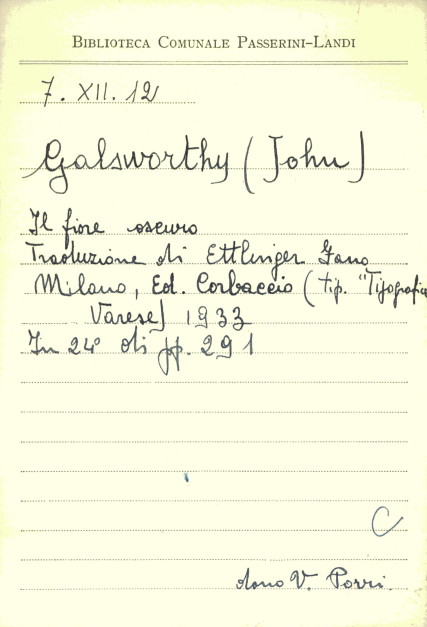 BIBLIOTECA COMUNALE PASSERINI-LANDI
7. XII. 12
Galsworthy (John)
Il fiore oscuro
Traduzione di Ettlinger Fano
Milano, Ed. Corbaccio (tip. "Tipografica
Varese) 1933
In 24° di pp. 291
C
dono V. Porri.